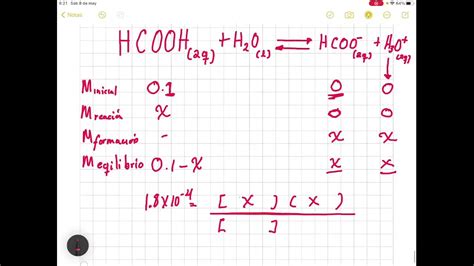 8:21 Sáb 8 de may
64%
Notas
HCOOH(aq) + H2O(l) ⇌ HCOO⁻(aq) + H3O⁺(aq)
Minicial 0.1 0 0
Mreación X 0 0
Mformación - X X
Mequilibrio 0.1-X X X
1.8X10⁻⁴ = [ X ] ( X )
[ ]